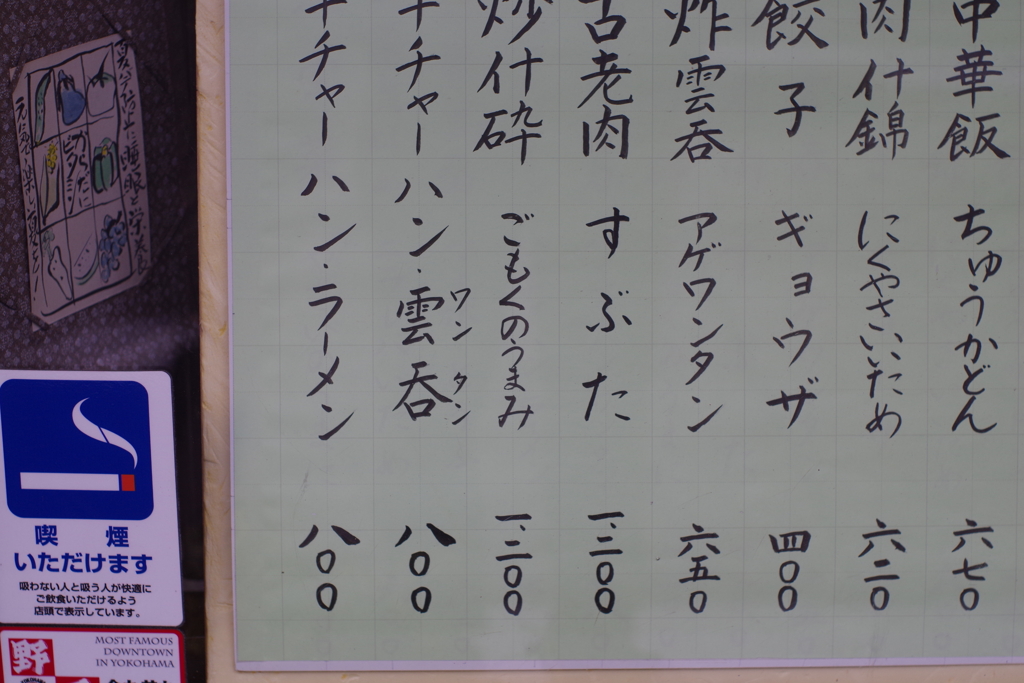 中華飯 ちゅうかどん 六七〇
肉什錦 にくやさいいため 六二〇
餃子 ギョウザ 四〇〇
炸雲呑 アゲワンタン 六五〇
古老肉 すぶた 一、二〇〇
炒什砕 ごもくのうまみ 一、二〇〇
チャーハン・雲呑 ワンタン 八〇〇
チャーハン・ラーメン 八〇〇
からだに
ビタミン
喫煙
いただけます
吸わない人と吸う人が快適に
ご飲食いただけるよう
店頭で表示しています。
MOST FAMOUS
DOWNTOWN
IN YOKOHAMA
野